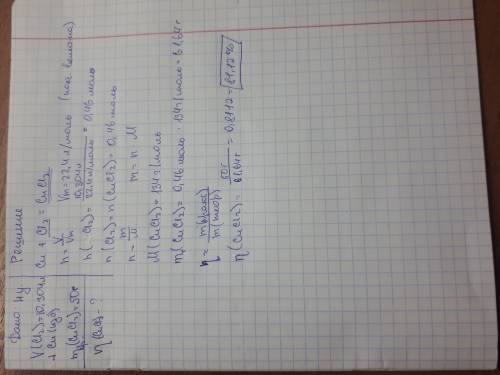 Дано н.у
V(Cl₂)=10,304л
+ Cu(изб)
mпр(CuCl₂)=50г
η(CuCl₂)-?
Решение
Cu + Cl₂ = CuCl₂
n = V/Vm
Vm=22,4 л/моль
n(Cl₂) = 10,304л/22,4 л/моль = 0,46 моль
n(Cl₂) = n(CuCl₂) = 0,46 моль
n = m/M m = n·M
M(CuCl₂) = 134 г/моль
m(CuCl₂) = 0,46 моль · 134 г/моль = 61,64 г
η = m(практ)/m(теор)
η(CuCl₂) = 50г/61,64г = 0,8112 = 81,12%